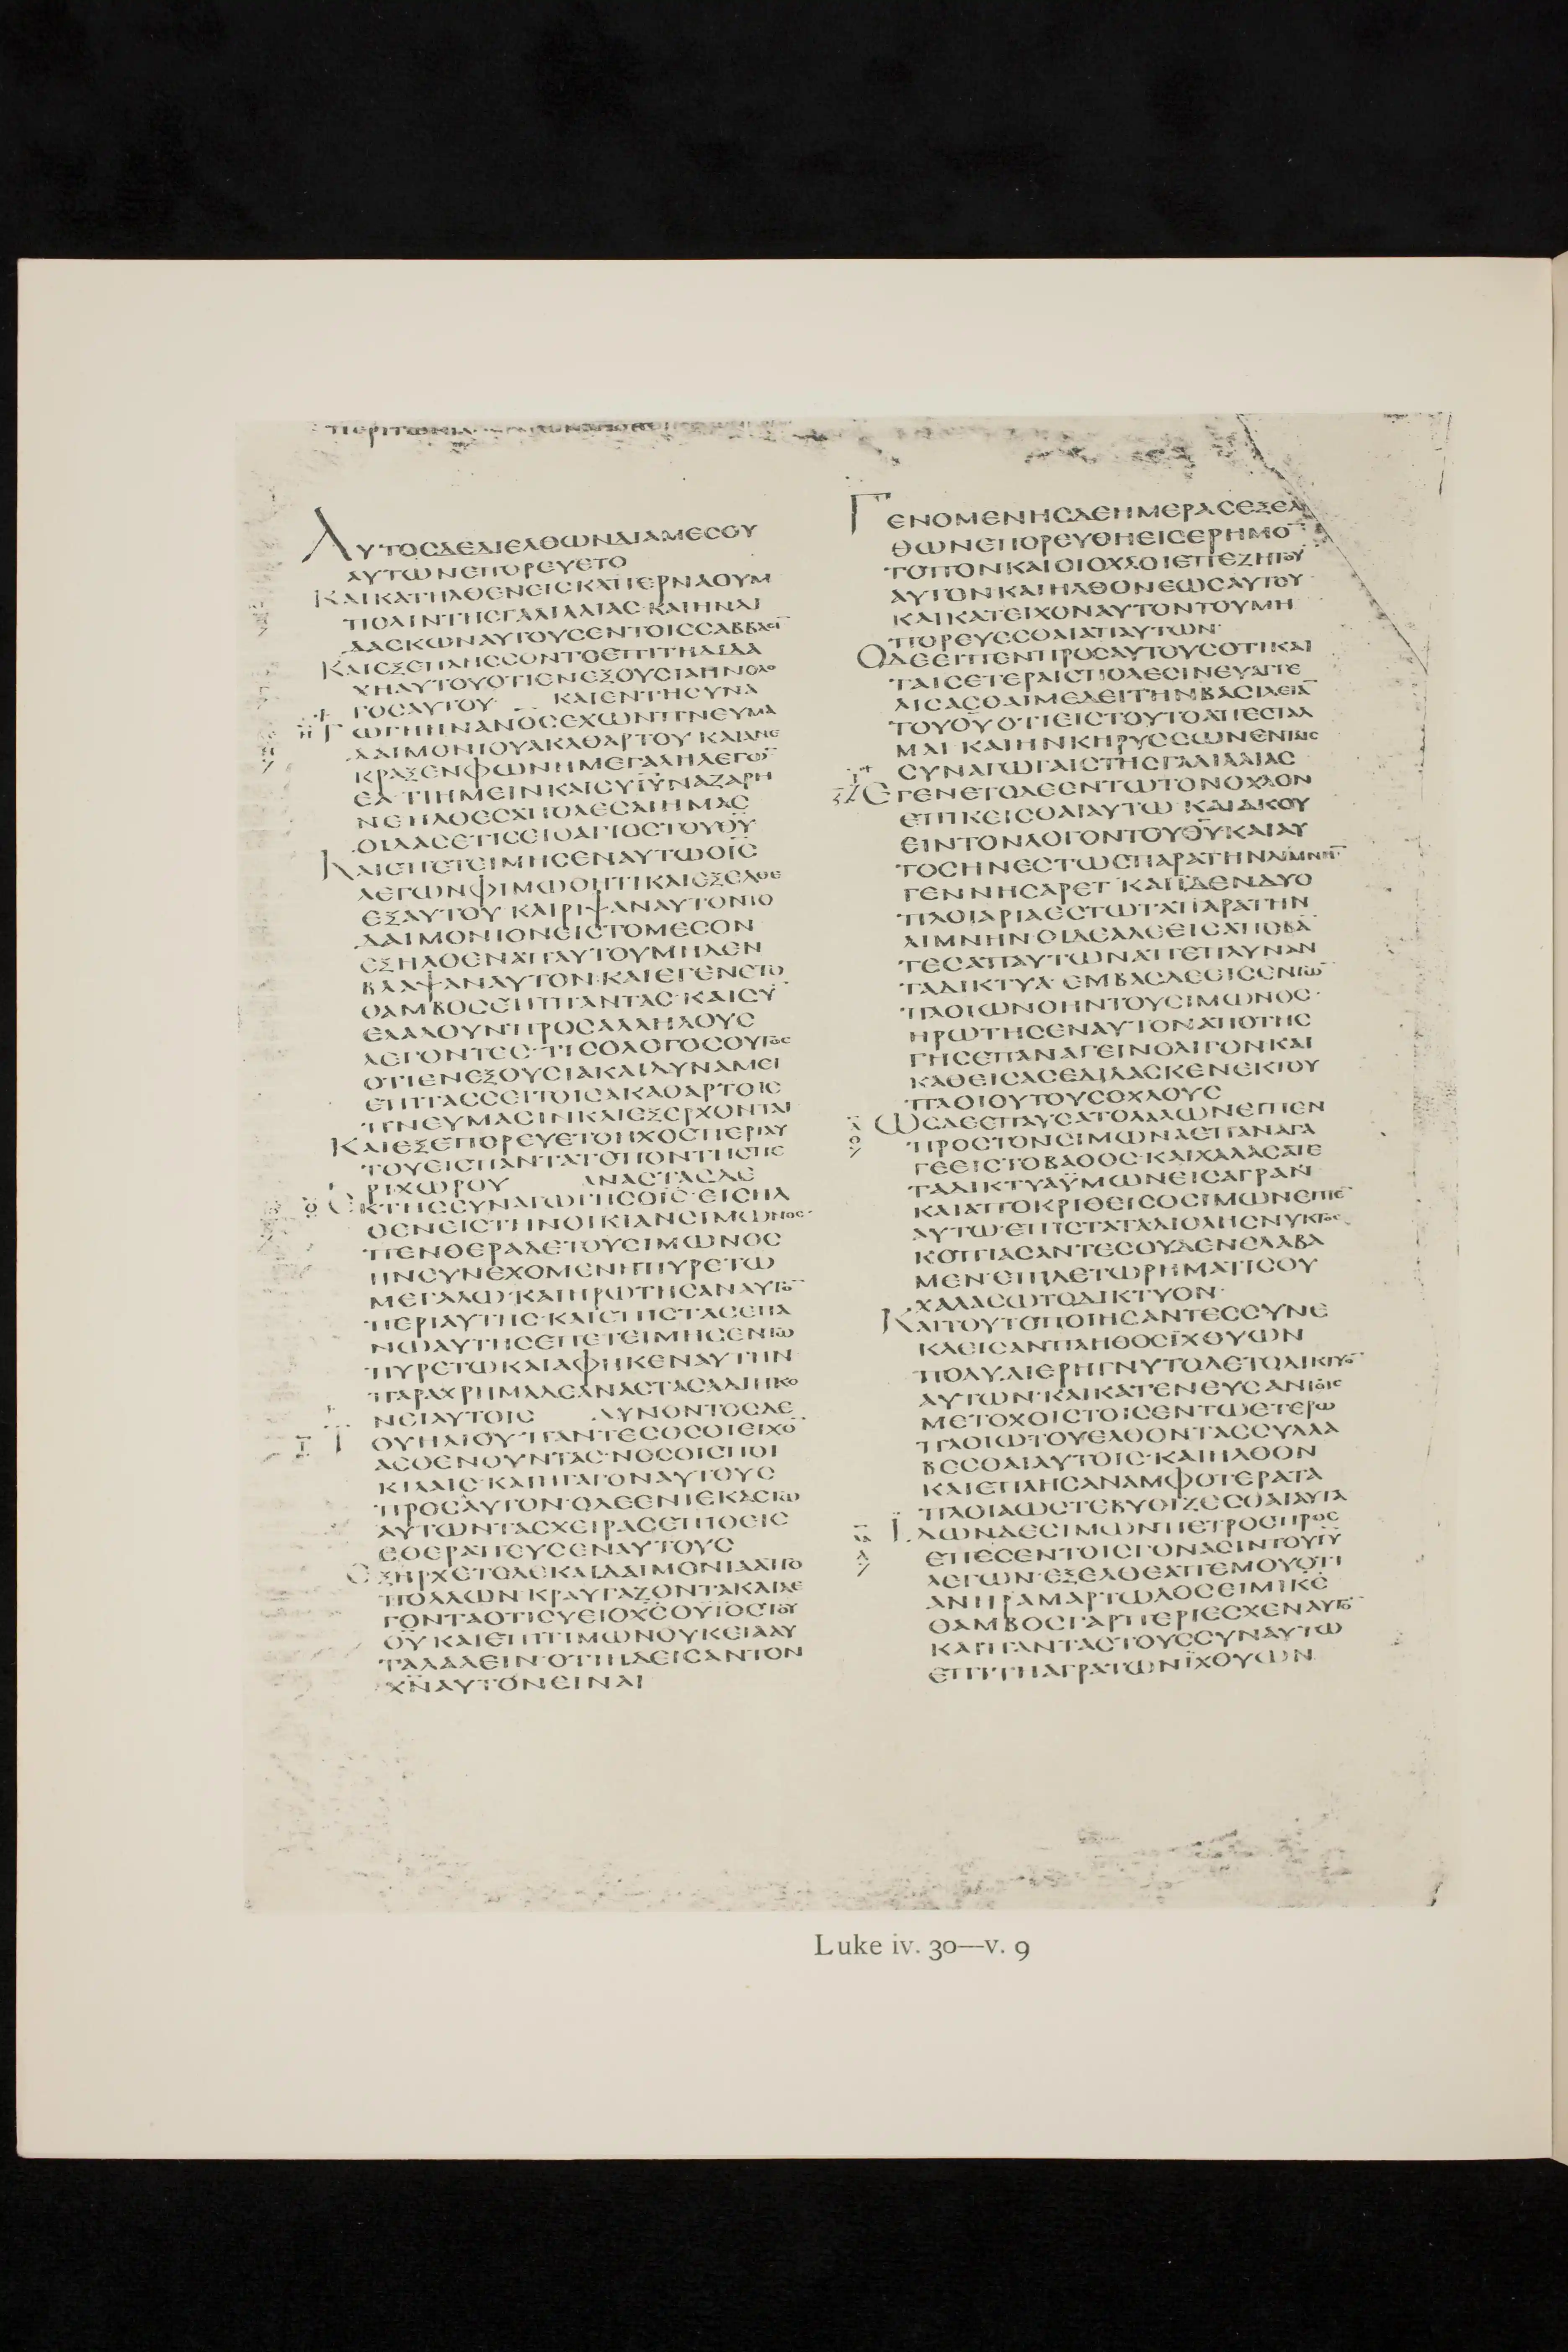 ΑΥΤΟCΔΕΔΙΕΛΘΩΝΔΙΑΜΕCΟΥ
ΑΥΤΩΝΕΠΟΡΕΥΕΤΟ
ΚΑΙΚΑΤΗΛΘΕΝΕΙCΚΑΠΕΡΝΑΟΥΜ
ΠΟΛΙΝΤΗCΓΑΛΙΛΑΙΑC·ΚΑΙΗΝΔΙ
ΔΑCΚΩΝΑΥΤΟΥCΕΝΤΟΙCCΑΒΒΑCῙ
ΚΑΙΕΞΕΠΛΗCCΟΝΤΟΕΠΙΤΗΔΙΔΑ
ΧΗΑΥΤΟΥΟΤΙΕΝΕΞΟΥCΙΑΗΝΟΛΟ
ΓΟCΑΥΤΟΥ ΚΑΙΕΝΤΗCΥΝΑ
ΓΩΓΗΗΝΑΝΟ̄CΕΧΩΝΠΝΕΥΜΑ
ΔΑΙΜΟΝΙΟΥΑΚΑΘΑΡΤΟΥ ΚΑΙΑΝΕ
ΚΡΑΞΕΝΦΩΝΗΜΕΓΑΛΗΛΕΓΩ̄
ΕΑ ΤΙΗΜΕΙΝΚΑΙCΥῙῩΝΑΖΑΡΗ
ΝΕΗΛΘΕCΑΠΟΛΕCΑΙΗΜΑC
ΟΙΔΑCΕΤΙCΕΙΟΑΓΙΟCΤΟΥΘ̄Ῡ
ΚΑΙΕΠΕΤΕΙΜΗCΕΝΑΥΤΩΟῙC̄
ΛΕΓΩΝΦΙΜΩΘΗΤΙΚΑΙΕΞΕΛΘΕ
ΕΞΑΥΤΟΥ ΚΑΙΡΙΨΑΝΑΥΤΟΝΤΟ
ΔΑΙΜΟΝΙΟΝΕΙCΤΟΜΕCΟΝ
ΕΞΗΛΘΕΝΑΠΑΥΤΟΥΜΗΔΕΝ
ΒΛΑΨΑΝΑΥΤΟΝ·ΚΑΙΕΓΕΝΕΤΟ
ΘΑΜΒΟCΕΠΙΠΑΝΤΑC·ΚΑΙCῩ
ΕΛΑΛΟΥΝΠΡΟCΑΛΛΗΛΟΥC
ΛΕΓΟΝΤΕC·ΤΙCΟΛΟΓΟCΟΥΤΟC
ΟΤΙΕΝΕΞΟΥCΙΑΚΑΙΔΥΝΑΜΕΙ
ΕΠΙΤΑCCΕΙΤΟΙCΑΚΑΘΑΡΤΟΙC
ΠΝΕΥΜΑCΙΝΚΑΙΕΞΕΡΧΟΝΤΑΙ
ΚΑΙΕΞΕΠΟΡΕΥΕΤΟΗΧΟCΠΕΡΙΑΥ
ΤΟΥΕΙCΠΑΝΤΑΤΟΠΟΝΤΗCΠΕ
ΡΙΧΩΡΟΥ ΑΝΑCΤΑCΔΕ
ΕΚΤΗCCΥΝΑΓΩΓΗCΟῙC̄·ΕΙCΗΛ
ΘΕΝΕΙCΤΗΝΟΙΚΙΑΝCΙΜΩΝΟC·
ΠΕΝΘΕΡΑΔΕΤΟΥCΙΜΩΝΟC
ΗΝCΥΝΕΧΟΜΕΝΗΠΥΡΕΤΩ
ΜΕΓΑΛΩ·ΚΑΙΗΡΩΤΗCΑΝΑΥΤΟ̄
ΠΕΡΙΑΥΤΗC·ΚΑΙΕΠΙCΤΑCΕΠΑ
ΝΩΑΥΤΗCΕΠΕΤΕΙΜΗCΕΝΤΩ
ΠΥΡΕΤΩΚΑΙΑΦΗΚΕΝΑΥΤΗΝ
ΠΑΡΑΧΡΗΜΑΔΕΑΝΑCΤΑCΑΔΙΗΚΟ
ΝΕΙΑΥΤΟΙC ΔΥΝΟΝΤΟCΔΕ
ΤΟΥΗΛΙΟΥ·ΠΑΝΤΕCΟCΟΙΕΙΧΟ̄
ΑCΘΕΝΟΥΝΤΑC·ΝΟCΟΙCΠΟΙ
ΚΙΛΑΙC·ΚΑΙΗΓΑΓΟΝΑΥΤΟΥC
ΠΡΟCΑΥΤΟΝ·ΟΔΕΕΝΙΕΚΑCΤΩ
ΑΥΤΩΝΤΑCΧΕΙΡΑCΕΠΙΘΕΙC
ΕΘΕΡΑΠΕΥCΕΝΑΥΤΟΥC
ΕΞΗΡΧΕΤΟΔΕΚΑΙΔΑΙΜΟΝΙΑΑΠΟ
ΠΟΛΛΩΝ·ΚΡΑΥΓΑΖΟΝΤΑΚΑΙΛΕ
ΓΟΝΤΑΟΤΙCΥΕΙΟΧ̄C̄ΟΥΙΟCΤΟΥ
Θ̄Ῡ ΚΑΙΕΠΙΤΙΜΩΝΟΥΚΕΙΑΑΥ
ΤΑΛΑΛΕΙΝ·ΟΤΙΗΔΕΙCΑΝΤΟΝ
Χ̄Ν̄ΑΥΤΟΝΕΙΝΑΙ
ΓΕΝΟΜΕΝΗCΔΕΗΜΕΡΑCΕΞΕΛ
ΘΩΝΕΠΟΡΕΥΘΗΕΙCΕΡΗΜΟ̄
ΤΟΠΟΝΚΑΙΟΙΟΧΛΟΙΕΠΕΖΗΤΟΥ
ΑΥΤΟΝΚΑΙΗΛΘΟΝΕΩCΑΥΤΟΥ
ΚΑΙΚΑΤΕΙΧΟΝΑΥΤΟΝΤΟΥΜΗ
ΠΟΡΕΥΕCΘΑΙΑΠΑΥΤΩΝ·
ΟΔΕΕΙΠΕΝΠΡΟCΑΥΤΟΥCΟΤΙΚΑΙ
ΤΑΙCΕΤΕΡΑΙCΠΟΛΕCΙΝΕΥΑΓΓΕ
ΛΙCΑCΘΑΙΜΕΔΕΙΤΗΝΒΑCΙΛΕΙᾹ
ΤΟΥΘ̄ῩΟΤΙΕΙCΤΟΥΤΟΑΠΕCΤΑΛ
ΜΑΙ·ΚΑΙΗΝΚΗΡΥCCΩΝΕΝΤΑΙC
CΥΝΑΓΩΓΑΙCΤΗCΓΑΛΙΛΑΙΑC
ΕΓΕΝΕΤΟΔΕΕΝΤΩΤΟΝΟΧΛΟΝ
ΕΠΙΚΕΙCΘΑΙΑΥΤΩ ΚΑΙΑΚΟΥ
ΕΙΝΤΟΝΛΟΓΟΝΤΟΥΘ̄ῩΚΑΙΑΥ
ΤΟCΗΝΕCΤΩCΠΑΡΑΤΗΝΛΙΜΝΗ̄
ΓΕΝΝΗCΑΡΕΤ·ΚΑΙΪΔΕΝΔΥΟ
ΠΛΟΙΑΡΙΑΕCΤΩΤΑΠΑΡΑΤΗΝ
ΛΙΜΝΗΝ·ΟΙΔΕΑΛΕΕΙCΑΠΟΒΑ
ΤΕCΑΠΑΥΤΩΝΑΠΕΠΛΥΝΑΝ
ΤΑΔΙΚΤΥΑ·ΕΜΒΑCΔΕΕΙCΕΝΤΩ̄
ΠΛΟΙΩΝΟΗΝΤΟΥCΙΜΩΝΟC·
ΗΡΩΤΗCΕΝΑΥΤΟΝΑΠΟΤΗC
ΓΗCΕΠΑΝΑΓΕΙΝΟΛΙΓΟΝΚΑΙ
ΚΑΘΕΙCΑCΕΔΙΔΑCΚΕΝΕΚΤΟΥ
ΠΛΟΙΟΥΤΟΥCΟΧΛΟΥC
ΩCΔΕΕΠΑΥCΑΤΟΛΑΛΩΝΕΙΠΕΝ
ΠΡΟCΤΟΝCΙΜΩΝΑΕΠΑΝΑΓΑ
ΓΕΕΙCΤΟΒΑΘΟC·ΚΑΙΧΑΛΑCΑΤΕ
ΤΑΔΙΚΤΥΑΫΜΩΝΕΙCΑΓΡΑΝ
ΚΑΙΑΠΟΚΡΙΘΕΙCΟCΙΜΩΝΕΙΠΕ̄
ΑΥΤΩ·ΕΠΙCΤΑΤΑΔΙΟΛΗCΝΥΚΤΟC
ΚΟΠΙΑCΑΝΤΕCΟΥΔΕΝΕΛΑΒΑ
ΜΕΝ·ΕΠΙΔΕΤΩΡΗΜΑΤΙCΟΥ
ΧΑΛΑCΩΤΟΔΙΚΤΥΟΝ·
ΚΑΙΤΟΥΤΟΠΟΙΗCΑΝΤΕCCΥΝΕ
ΚΛΕΙCΑΝΠΛΗΘΟCΪΧΘΥΩΝ
ΠΟΛΥ·ΔΙΕΡΗΓΝΥΤΟΔΕΤΟΔΙΚΤΥΟ̄
ΑΥΤΩΝ·ΚΑΙΚΑΤΕΝΕΥCΑΝΤΟΙC
ΜΕΤΟΧΟΙCΤΟΙCΕΝΤΩΕΤΕΡΩ
ΠΛΟΙΩΤΟΥΕΛΘΟΝΤΑCCΥΛΛΑ
ΒΕCΘΑΙΑΥΤΟΙC·ΚΑΙΗΛΘΟΝ
ΚΑΙΕΠΛΗCΑΝΑΜΦΟΤΕΡΑΤΑ
ΠΛΟΙΑΩCΤΕΒΥΘΙΖΕCΘΑΙΑΥΤΑ
ΪΔΩΝΔΕCΙΜΩΝΠΕΤΡΟCΠΡΟC
ΕΠΕCΕΝΤΟΙCΓΟΝΑCΙΝΤΟΥῙῩ
ΛΕΓΩΝ·ΕΞΕΛΘΕΑΠΕΜΟΥΟΤΙ
ΑΝΗΡΑΜΑΡΤΩΛΟCΕΙΜΙΚ̄Ε̄
ΘΑΜΒΟCΓΑΡΠΕΡΙΕCΧΕΝΑΥΤΟ̄
ΚΑΙΠΑΝΤΑCΤΟΥCCΥΝΑΥΤΩ
ΕΠΙΤΗΑΓΡΑΤΩΝΪΧΘΥΩΝ
Luke iv. 30—v. 9